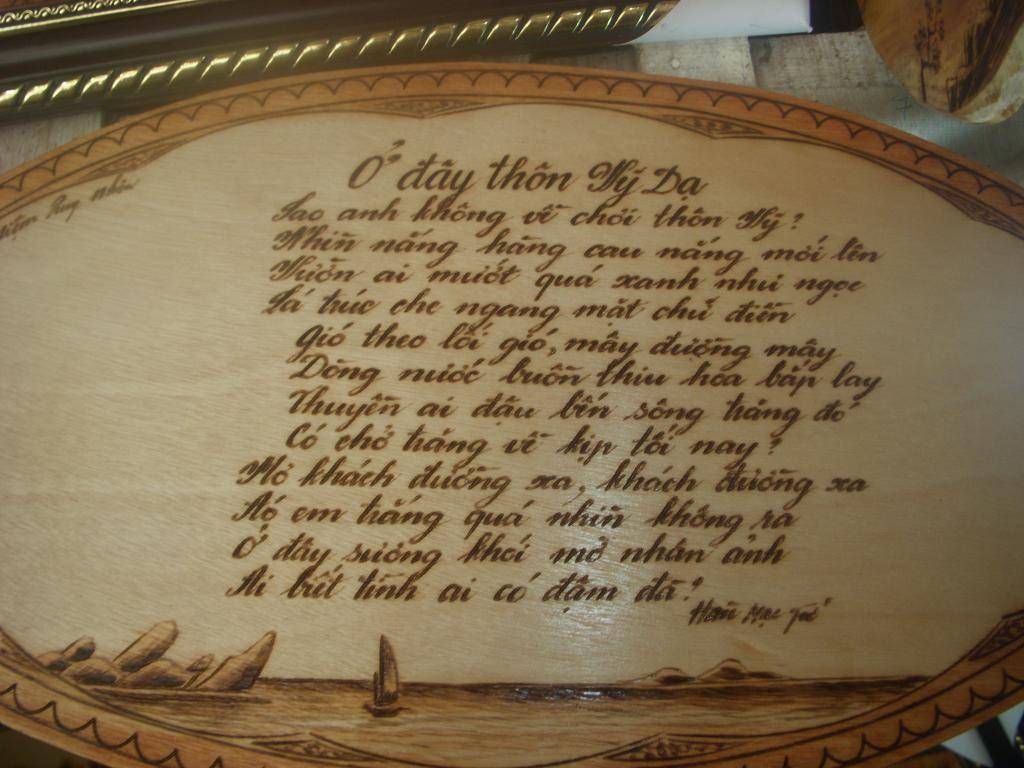 Ở đây thôn Vỹ Dạ
Sao anh không về chơi thôn Vỹ?
Nhìn nắng hàng cau nắng mới lên
Vườn ai mướt quá xanh như ngọc
Lá trúc che ngang mặt chữ điền
Gió theo lối gió, mây đường mây
Dòng nước buồn thiu hoa bắp lay
Thuyền ai đậu bến sông trăng đó
Có chở trăng về kịp tối nay?
Mơ khách đường xa, khách đường xa
Áo em trắng quá nhìn không ra
Ở đây sương khói mờ nhân ảnh
Ai biết tình ai có đậm đà?
Hàn Mạc Tử